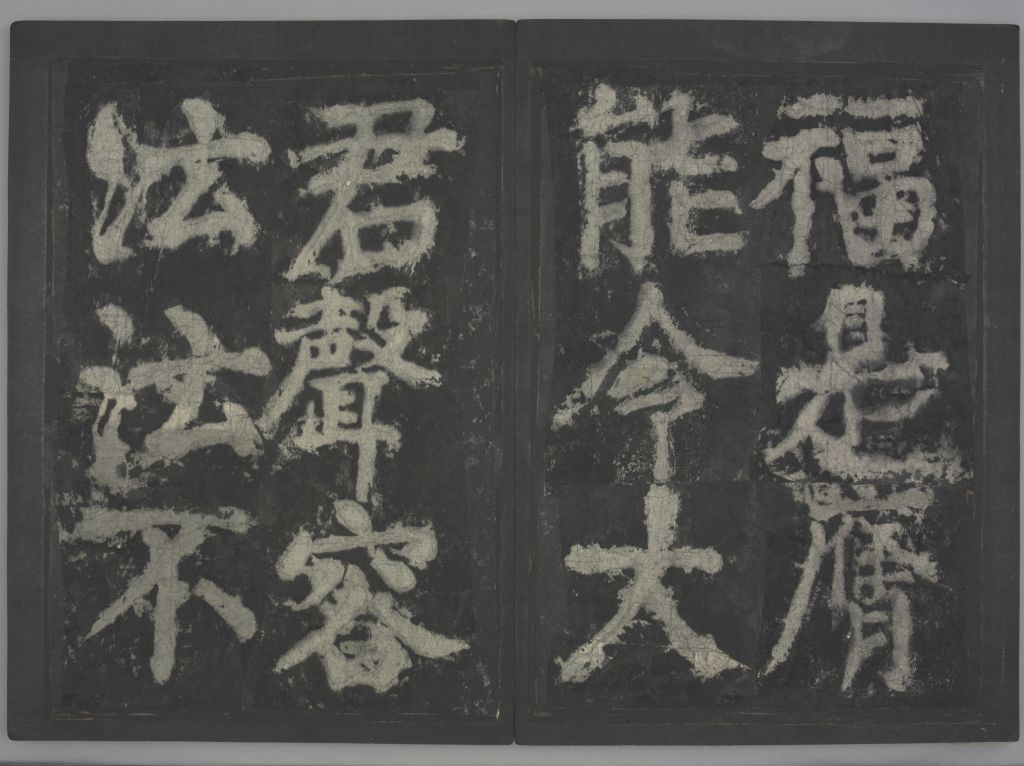 福是膺
能令大
君聲容
沄沄不